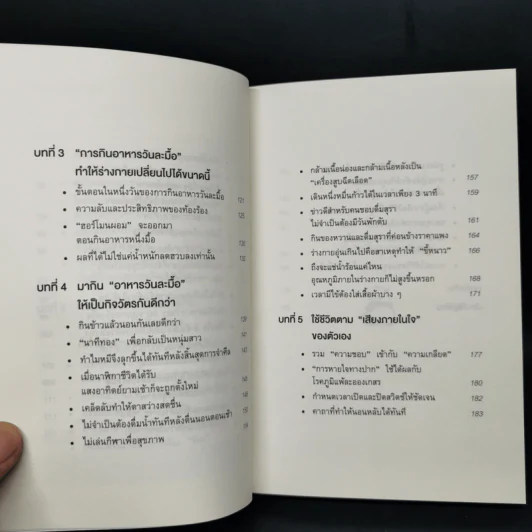 บทที่ 3 “การกินอาหารวันละมื้อ”
ทำให้ร่างกายเปลี่ยนไปได้ขนาดนี้
• ขั้นตอนในหนึ่งวันของการกินอาหารวันละมื้อ 121
• ความลับและประสิทธิภาพของท้องร้อง
• “ฮอร์โมนผอม” จะออกมา
ตอนกินอาหารหนึ่งมื้อ
• ผลที่ได้ไม่ใช่แค่น้ำหนักลดฮวบลงเท่านั้น 132
บทที่ 4 มากิน “อาหารวันละมื้อ”
ให้เป็นกิจวัตรกันดีกว่า
• กินข้าวแล้วนอนกันเลยดีกว่า
• “นาทีทอง” เพื่อกลับเป็นหนุ่มสาว
• ทำไมหมีจึงลุกขึ้นได้ทันทีหลังสิ้นสุดการจำศีล
• เมื่อนาฬิกาชีวิตได้รับ
แสงอาทิตย์ยามเช้าก็จะถูกตั้งใหม่
• เคล็ดลับทำให้ตาสว่างสดชื่น
• ไม่จำเป็นต้องดื่มน้ำทันทีหลังตื่นนอนตอนเช้า
• ไม่เล่นกีฬาเพื่อสุขภาพ
• กล้ามเนื้อน่องและกล้ามเนื้อหลังเป็น
“เครื่องสูบฉีดเลือด” 157
• เดินหนึ่งหมื่นก้าวได้ในเวลาเพียง 3 นาที 159
• ข่าวดีสำหรับคนชอบดื่มสุรา
ไม่จำเป็นต้องมีวันพักตับ 161
• กินของหวานและดื่มสุราที่ค่อนข้างราคาแพง 164
• ร่างกายอุ่นเกินไปคือสาเหตุทำให้ “ขี้หนาว” 166
• ถึงจะแช่น้ำร้อนแค่ไหน
อุณหภูมิภายในร่างกายก็ไม่สูงขึ้นหรอก 168
• เวลามีไข้ต้องใส่เสื้อผ้าบาง ๆ 171
บทที่ 5 ใช้ชีวิตตาม “เสียงภายในใจ”
ของตัวเอง
• รวม “ความชอบ” เข้ากับ “ความเกลียด” 177
• “การหายใจทางปาก” ใช้ได้ผลกับ
โรคภูมิแพ้ละอองเกสร 180
• กำหนดเวลาเปิดและปิดสวิตช์ให้ชัดเจน 182
• คาถาที่ทำให้นอนหลับได้ทันที 183